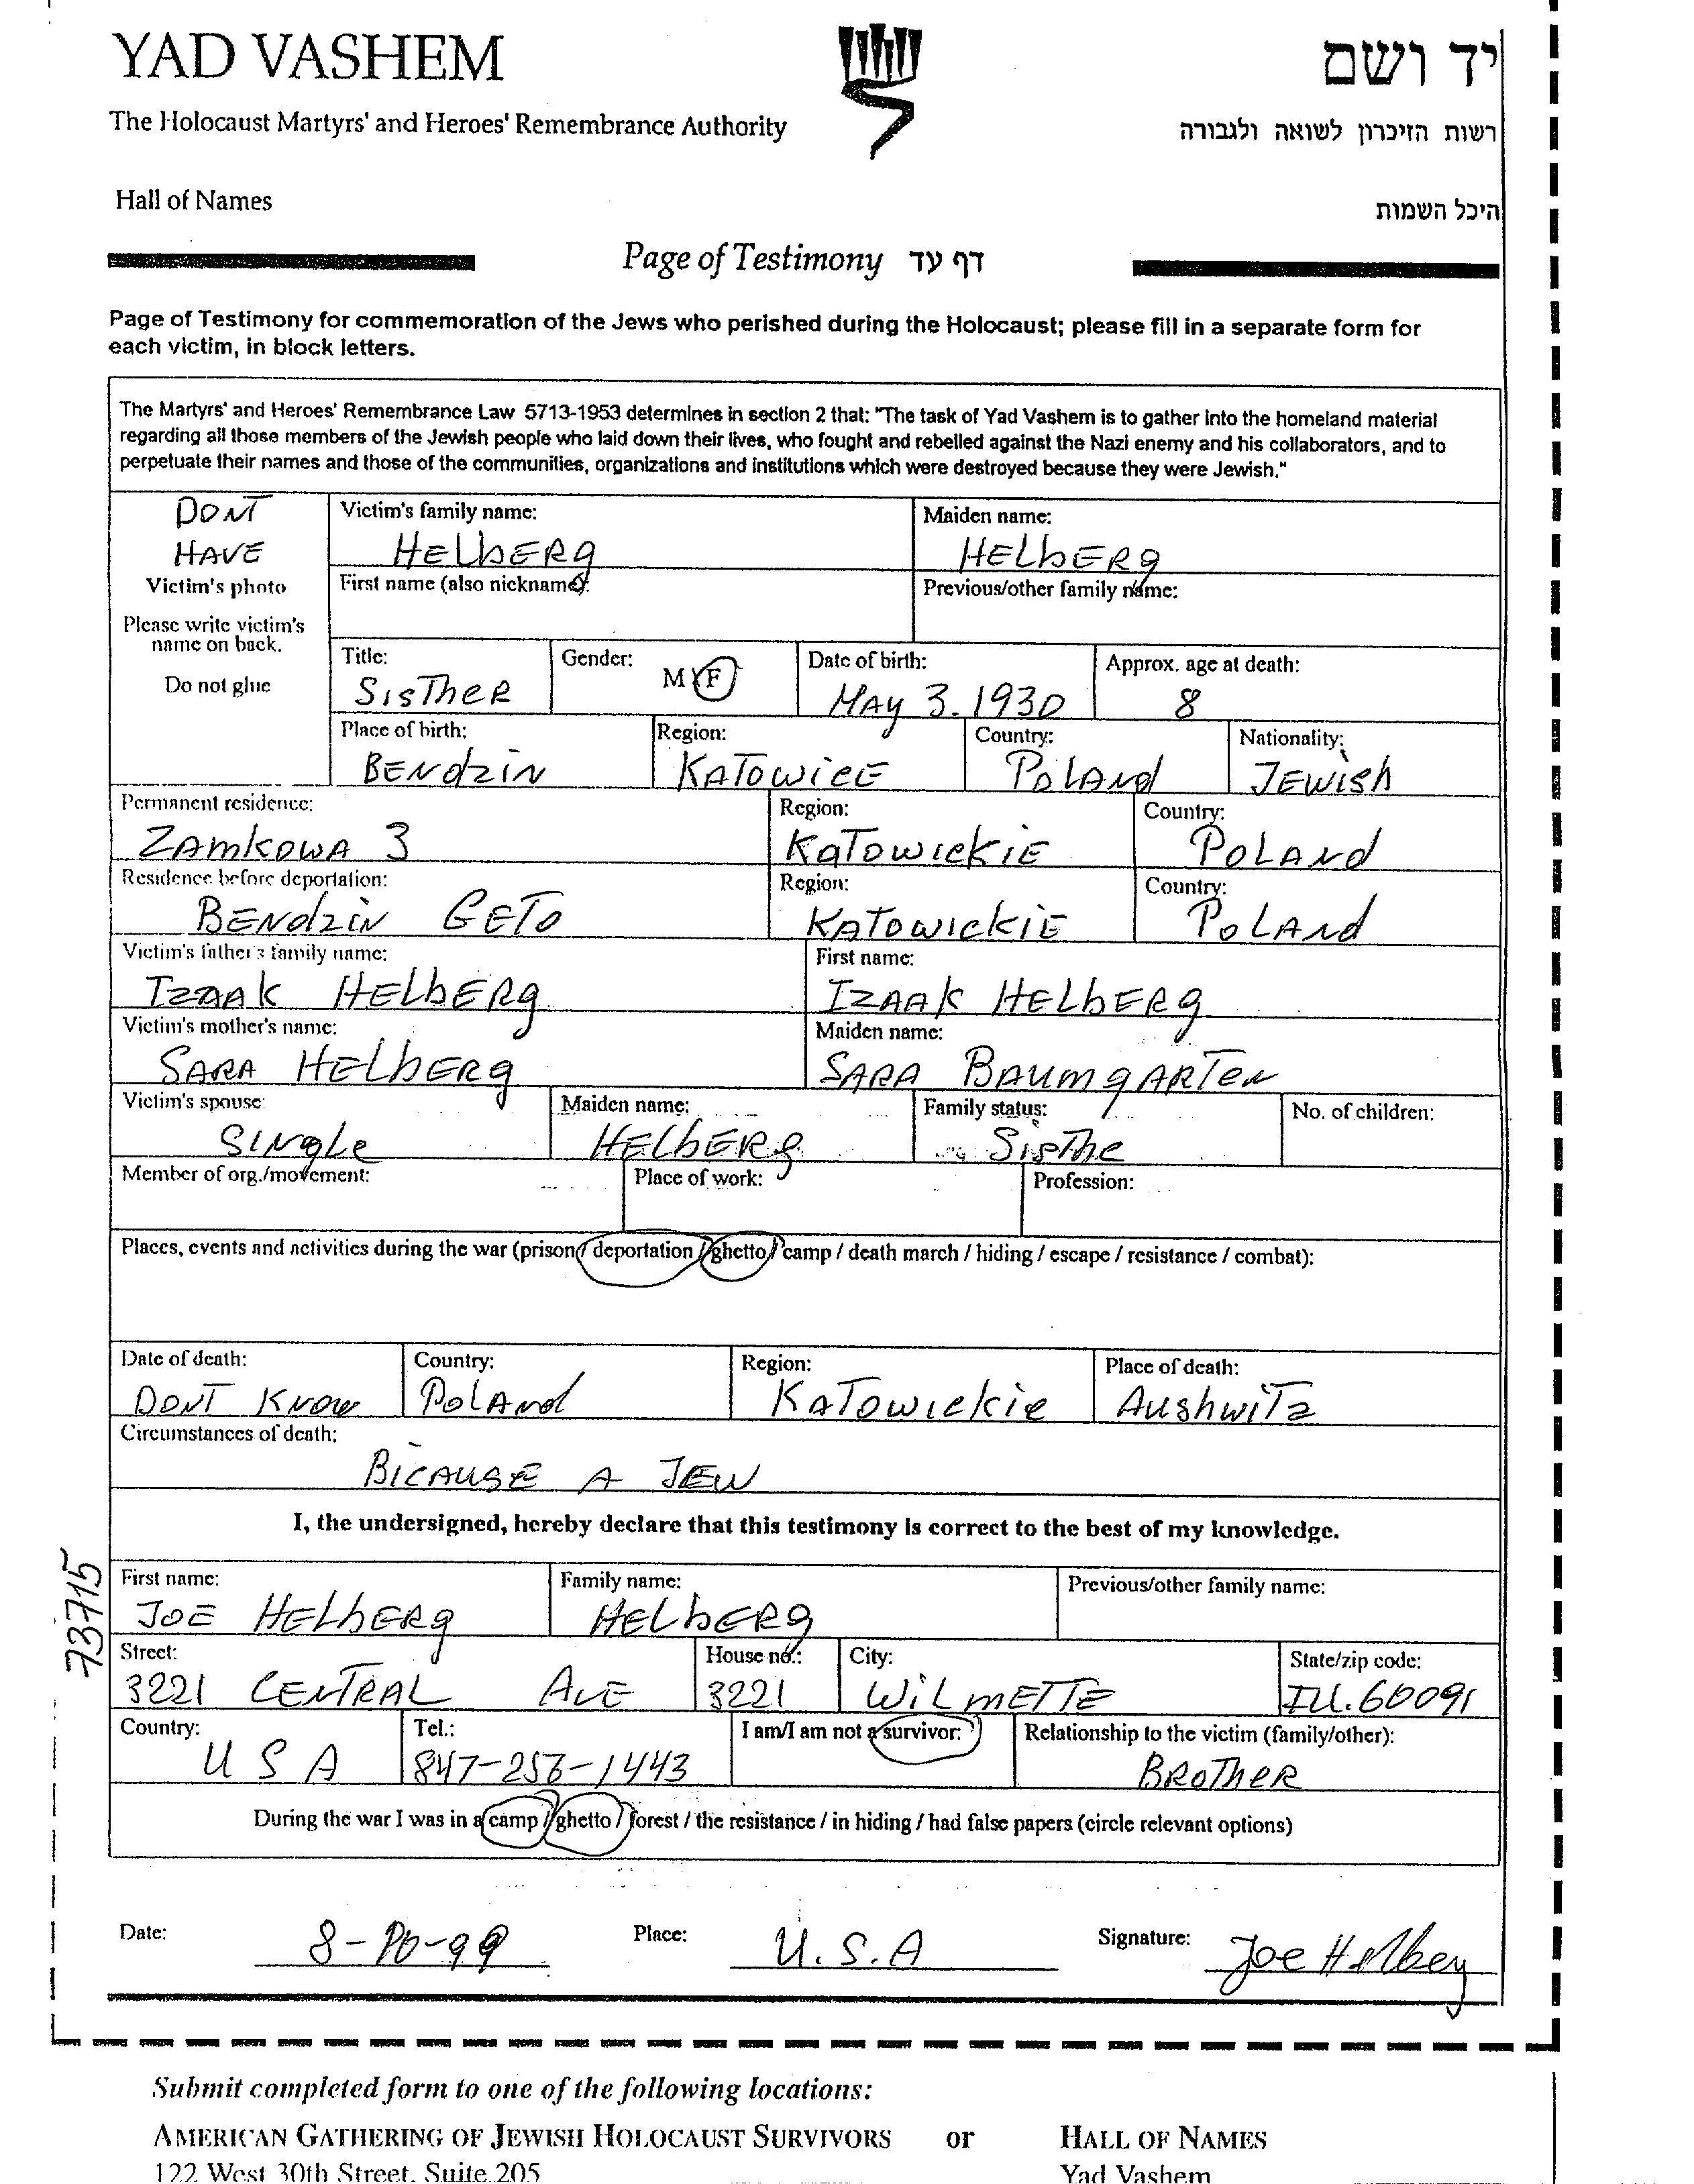 YAD VASHEM
יד ושם
The Holocaust Martyrs' and Heroes' Remembrance Authority
רשות הזיכרון לשואה ולגבורה
Hall of Names
היכל השמות
Page of Testimony דף עד
Page of Testimony for commemoration of the Jews who perished during the Holocaust; please fill in a separate form for
each victim, in block letters.
The Martyrs' and Heroes' Remembrance Law 5713-1953 determines in section 2 that: "The task of Yad Vashem is to gather into the homeland material
regarding all those members of the Jewish people who laid down their lives, who fought and rebelled against the Nazi enemy and his collaborators, and to
perpetuate their names and those of the communities, organizations and institutions which were destroyed because they were Jewish."
DONT
HAVE
Victim's photo
Please write victim's
name on back.
Do not glue
Victim's family name:
HELbERg
Maiden name:
HELbERg
First name (also nickname):
Previous/other family name:
Title:
SISTheR
Gender: M/F
Date of birth:
MAY 3. 1930
Approx. age at death:
8
Place of birth:
BENdziN
Region:
KATOWicE
Country:
POLANd
Nationality:
JEWish
Permanent residence:
ZAMKOWA 3
Region:
KATOWickiE
Country:
POLANd
Residence before deportation:
BENdziN GETO
Region:
KATOWickiE
Country:
POLANd
Victim's father's family name:
IZAAK HELbERg
First name:
IZAAK HELbERg
Victim's mother's name:
SARA HELbERg
Maiden name:
SARA BAUMgARTEN
Victim's spouse:
SINgLe
Maiden name:
HELbERg
Family status:
SisThe
No. of children:
Member of org./movement:
Place of work:
Profession:
Places, events and activities during the war (prison / deportation / ghetto / camp / death march / hiding / escape / resistance / combat):
Date of death:
DONT KNOW
Country:
POLANd
Region:
KATOWickie
Place of death:
AushwiTz
Circumstances of death:
BICAUSE A JEW
I, the undersigned, hereby declare that this testimony is correct to the best of my knowledge.
73715
First name:
JOE HELbERg
Family name:
HELbERg
Previous/other family name:
Street:
3221 CENTRAL AVE
House no.:
3221
City:
WiLMETTE
State/zip code:
ILL. 60091
Country:
U S A
Tel.:
847-256-1443
I am/I am not a survivor:
Relationship to the victim (family/other):
BROTHER
During the war I was in a camp / ghetto / forest / the resistance / in hiding / had false papers (circle relevant options)
Date:
Place: U.S.A
Signature: Joe Helberg
Submit completed form to one of the following locations:
AMERICAN GATHERING OF JEWISH HOLOCAUST SURVIVORS or HALL OF NAMES
122 West 30th Street, Suite 205 Yad Vashem